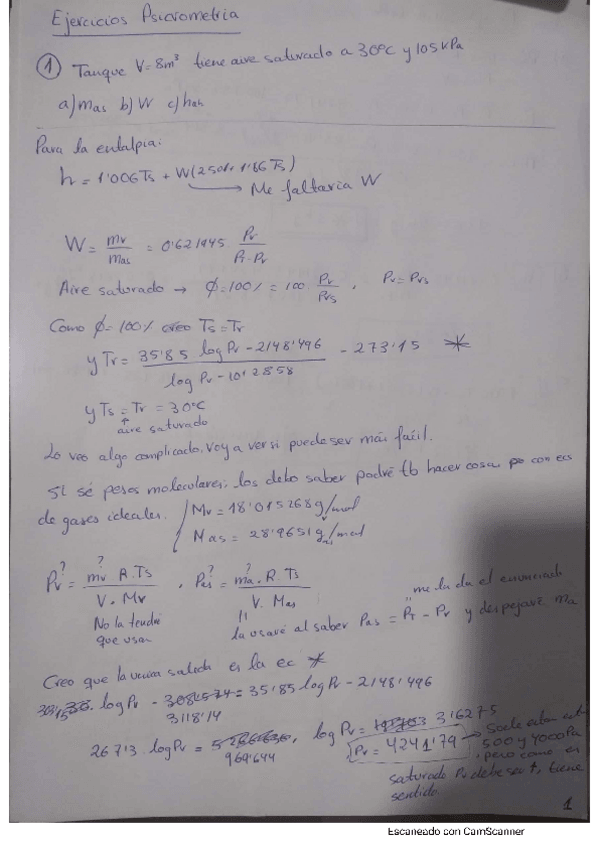 Ejercicios Psicrometria
① Tanque V=8m³ tiene aire saturado a 30ºC y 105 kPa
a) mas b) W c) hah
Para la entalpia:
h = 1'006 Ts + W(2501+1'86 Ts)
→ Me faltaría W
W = mv/mas = 0'621945 Pv/(PT-Pv)
Aire saturado → ϕ=100% = 100 · Pv/Pvs , Pv=Pvs
Como ϕ=100% creo Ts=Tr
y Tr = (35'85 log Pv - 2148'496)/(log Pv - 10'2858) - 273'15 *
y Ts = Tr = 30ºC
↑ aire saturado
Lo veo algo complicado, voy a ver si puede ser más fácil.
Si sé pesos moleculares: los debo saber podré tb hacer cosas con ecs
de gases ideales. Mv = 18'015268 g/mol
Mas = 28'9651 g/mol
Pv? = mv? · R · Ts / (V · Mv) , Pas? = ma? · R · Ts / (V · Mas)
No la tendré que usar
me la da el enunciado
la usaré al saber Pas = PT - Pv y despejaré ma
Creo que la única salida es la ec *
log Pv - 3118'14 = 35'85 log Pv - 2148'496
267'3 · log Pv = 969'644 , log Pv = 3'6275
Pv = 4241'79 → Suele estar entre
500 y 4000 Pa
, pero como es
saturado Pv debe ser ↑, tiene
sentido.
1
Escaneado con CamScanner